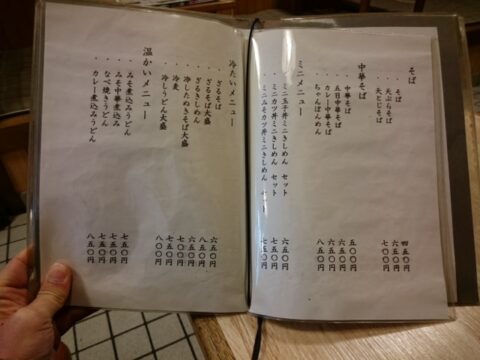 そば
・そば 四五〇円
・天ぷらそば 六五〇円
・天とじそば 七〇〇円
中華そば
・中華そば 五〇〇円
・五目中華そば 六五〇円
・カレー中華そば 六五〇円
・ちゃんぽんめん 八五〇円
ミニメニュー
・ミニ玉子丼ミニきしめん セット 六五〇円
・ミニカツ丼ミニきしめん セット 七五〇円
・ミニみそカツ丼ミニきしめん 七五〇円
冷たいメニュー
・ざるそば 六五〇円
・ざるそば大盛 八五〇円
・ざるきしめん 六五〇円
・冷したぬきそば大盛 七〇〇円
・冷麦 七五〇円
・冷しうどん大盛 八〇〇円
温かいメニュー
・みそ煮込みうどん 七五〇円
・みそ中華煮込み 七五〇円
・なべ焼きうどん 七五〇円
・カレー煮込みうどん 八五〇円